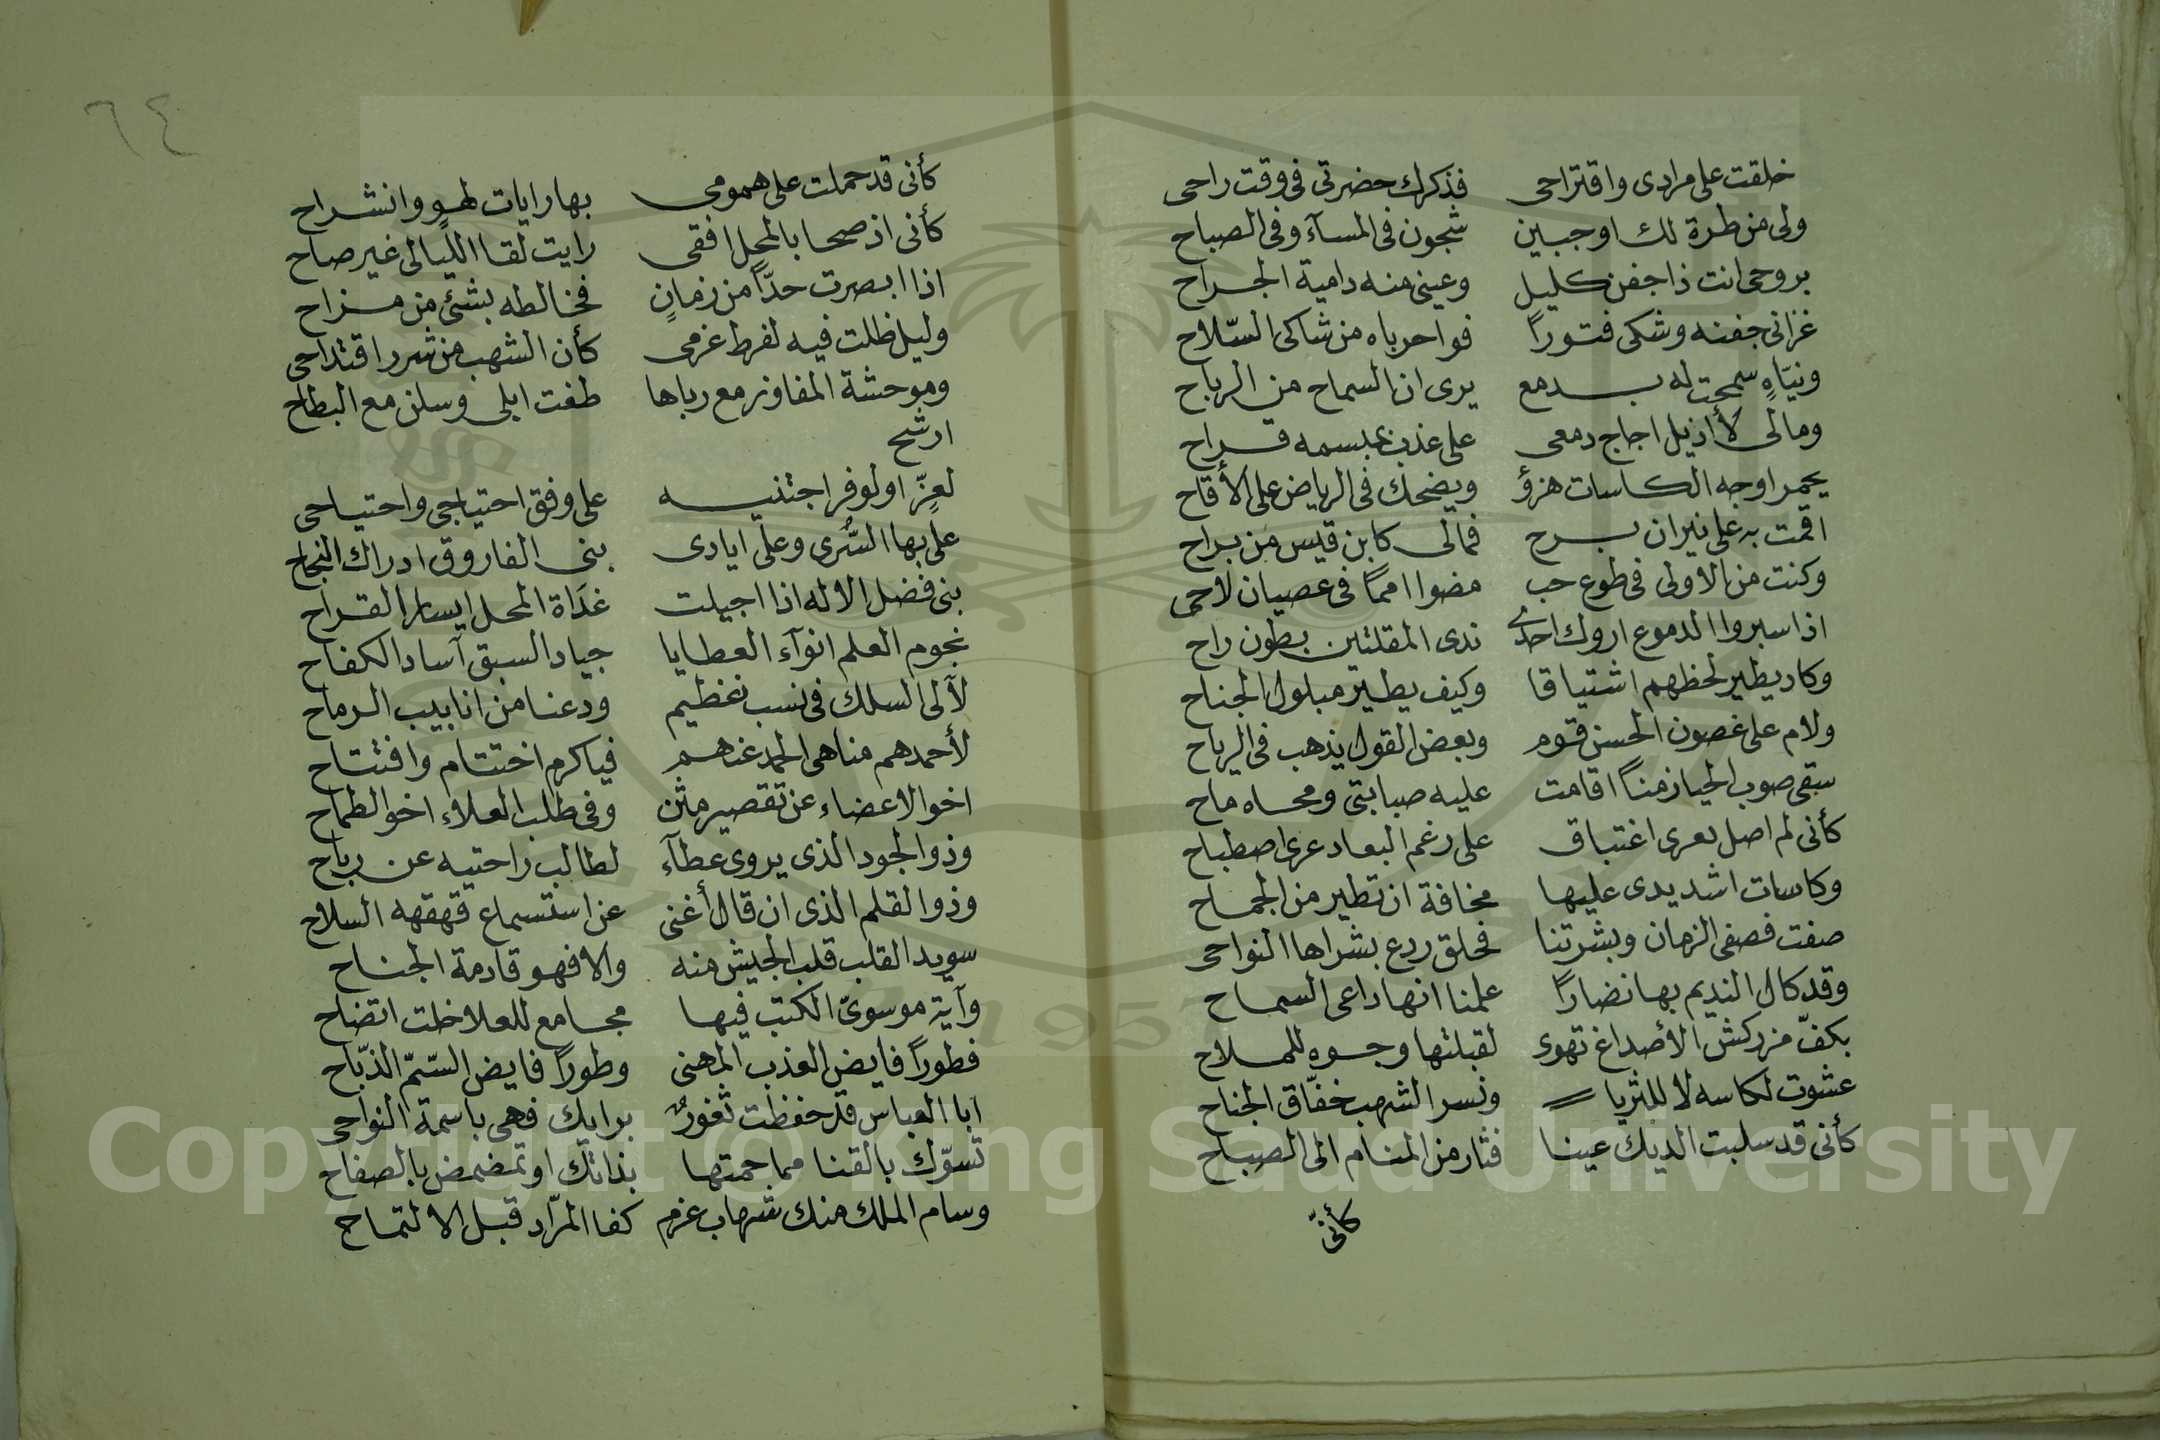 خلقت على مرادى واقتراحى فذكرك حضرتى فى وقت راحى
ولى من طرة لك او جبين شجون فى المسآء وفى الصباح
بروحى انت ذا جفن كليل وعينى منه دامية الجراح
غزانى جفنه وشكى فتورًا فواحرباه من شاكى السّلاح
وتيّاهٍ سمحت له بدمع يرى ان السماح من الرباح
ومالى لا أذيل اجاج دمعى على عذب بمبسمه قراح
يحمر اوجه الكاسات هزؤ ويضحك فى الرياض على الأقاح
اقمت به على نيران برح فمالى كابن قيس من براح
وكنت من الاولى فى طوع حب مضوا امما فى عصيان لاحى
اذا سبروا الدموع اروك احدى ندى المقلتين بطون راح
وكاد يطير لحظهم اشتياقا وكيف يطير مبلول الجناح
ولام على غصون الحسن قوم وبعض القول يذهب فى الرياح
سقى صوب الحيا زمنًا اقامت عليه صبابتى ومحاه ماح
كأنى لم اصل بعرى اغتباق على رغم البعاد عرى اصطباح
وكاسات اشد يدى عليها مخافة ان تطير من الجماح
صفت فصفى الزمان وبشرتنا فحلق ردع بشراها النواحى
وقد كال النديم بها نضارًا علمنا انها داعى السماح
بكفّ مزركش الأصداغ تهوى لقبلتها وجوه للملاح
عشوت لكاسه لا للثريا ونسر الشهب خفّاق الجناح
كأنى قد سلبت الديك عينا فثار من المنام الى الصباح
كأنّى
٦٤
كأنى قد حملت على همومى بها رايات لهوٍ وانشراح
كأنى اذ صحا بالمحل افقى رايت لقا الليالى غير صاح
اذا ابصرت حدًّا من زمانٍ فخالطه بشئ من مزاح
وليل ظلت فيه لفرط غرمى كأن الشهب من شرر اقتداحى
وموحشة المفاوز مع رباها طفت ابلى وسلن مع البطاح
ارشح
لعزّ او لوفر اجتنيه على وفق احتياجى واحتياحى
على بها السُّرى وعلى ايادى بنى الفاروق ادراك النجاح
بنى فضل الاله اذا اجيلت غدَاة المحل ايسار القراح
نجوم العلم انوآء العطايا جياد السبق آساد الكفاح
لآلى السلك فى نسب نغظيم ودعنا من انابيب الرماح
لأحمدهم مناهى الحمد غنهم فياكرم اختتام وافتتاح
اخو الاعضاء عن تقصير مثن وفى طلب العلاء اخو الطماح
وذو الجود الذى يروى عطآء لطالب راحتيه عن رباح
وذو القلم الذى ان قال أغنى عن استسماع قهقهه السلاح
سويد القلب قلب الجيش منه والا فهو قادمة الجناح
وآية موسوىّ الكتب فيها مجامع للعلا خلت اتضاح
فطورًا فايض العذب المهنى وطورًا فايض السّمّ الذبّاح
ابا العباس قد حفظت ثغورٌ برايك فهى باسمة النواحى
تسوّك بالقنا مما حمتها بذاتك او تمضمض بالصفاح
وسام الملك منك شهاب عزم كفا المرّاد قبل الالتماح